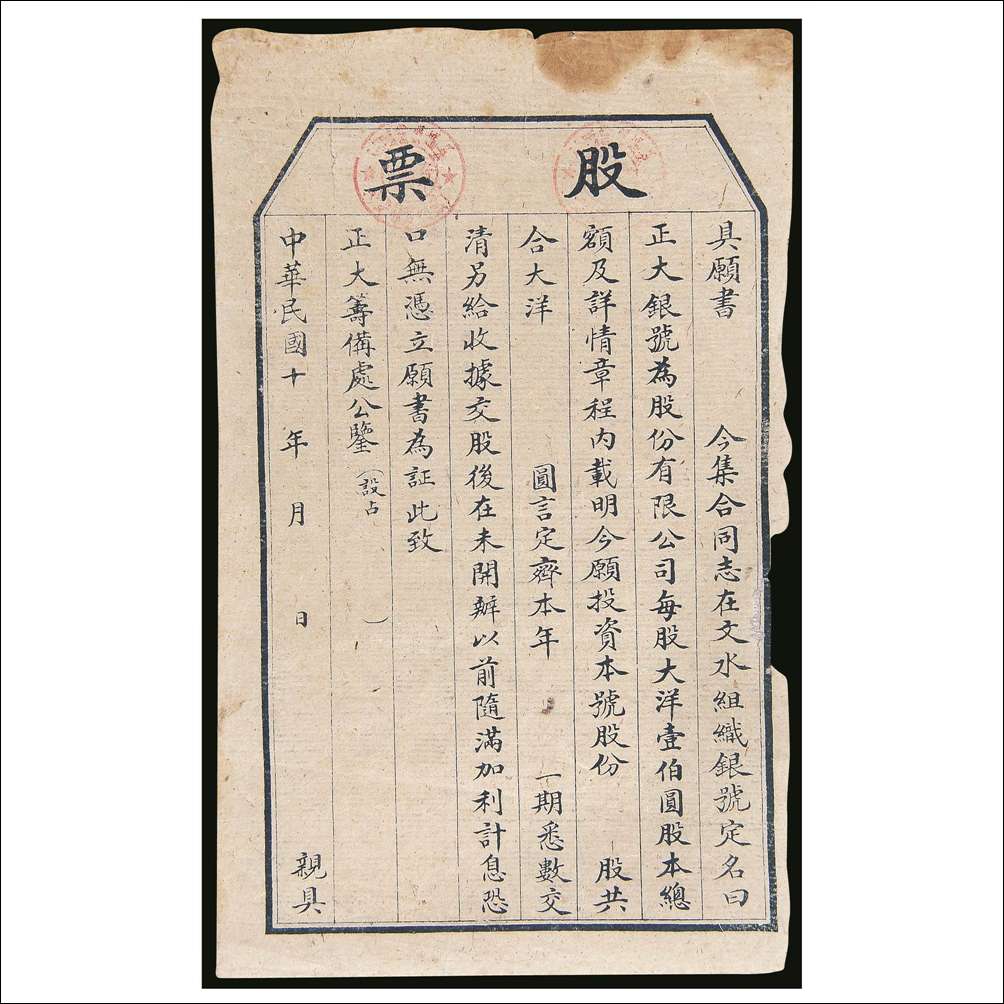 股票
具願書　今集合同志在文水組織銀號定名曰
正大銀號為股份有限公司每股大洋壹伯圓股本總
額及詳情章程內載明今願投資本號股份　股共
合大洋　圓言定齊本年　一期悉數交
清另給收據交股後在未開辦以前隨滿加利計息恐
口無憑立願書為証此致
正大籌備處公鑒（設占　）
中華民國十　年　月　日　親具